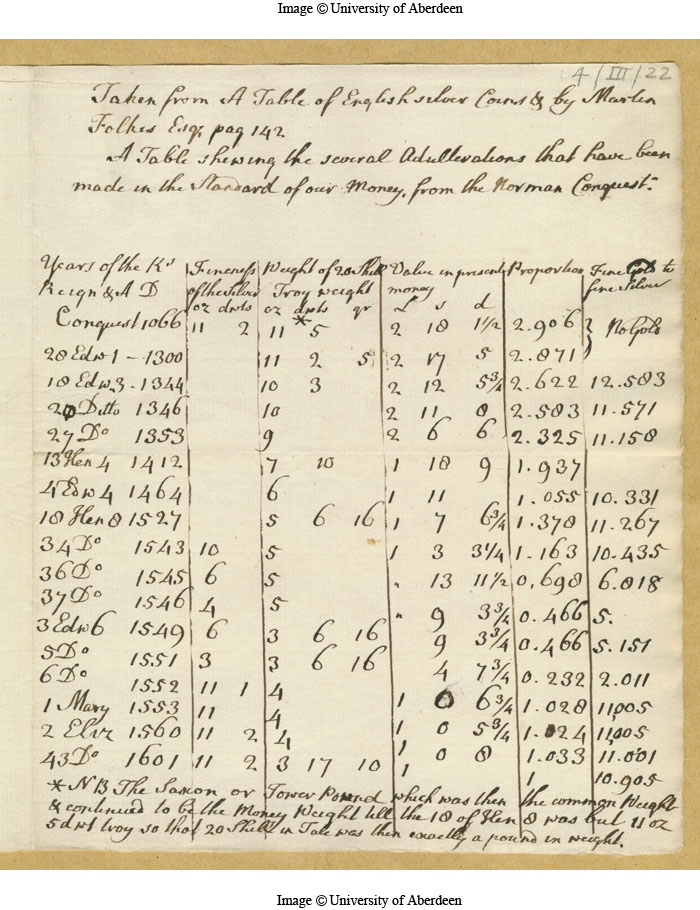 Image © University of Aberdeen
4/III/22
Taken from A Table of English silver Coins & by Martin
Folkes Esqr pag 142
A Table shewing the several Adulterations that have been
made in the Standard of our Money, from the Norman Conquest.
Years of the Ks Fineness Weight of 20 Shill Value in present Proportion Fine Gold to
Reign & A D of the Silver Troy weight money fine silver
oz dwts oz dwts gr £ s d
Conquest 1066 11 2 11 * 5 2 18 1 1/2 2.906 } No Gold
28 Edw 1 - 1300 11 2 5 2 17 5 2.871
18 Edw. 3 - 1344 10 3 2 12 5 3/4 2.622 12.583
20 Ditto 1346 10 2 11 8 2.583 11.571
27 Do 1353 9 2 6 6 2.325 11.158
13 Hen 4 1412 7 10 1 18 9 1.937
4 Edw 4 1464 6 1 11 1.055 10.331
18 Hen 8 1527 5 6 16 1 7 6 3/4 1.378 11.267
34 Do 1543 10 5 1 3 3 1/4 1.163 10.435
36 Do 1545 6 5 " 13 11 1/2 0.698 6.818
37 Do 1546 4 5 " 9 3 3/4 0.466 5.
3 Edw 6 1549 6 3 6 16 9 3 3/4 0.466 5.151
5 Do 1551 3 3 6 16 4 7 3/4 0.232 2.011
6 Do 1552 11 1 4 1 0 6 3/4 1.028 11,005
1 Mary 1553 11 4 1 0 5 3/4 1.024 11,005
2 Eliz 1560 11 2 4 1 0 8 1.033 11.001
43 Do 1601 11 2 3 17 10 1 1 10.905
* NB The Saxon or Tower Pound which was then the common Weight
& continued to be the Money Weight till the 18 of Hen 8 was but 11 oz
5 dwt troy so that 20 Shills in Tale was then exactly a pound in weight.
Image © University of Aberdeen